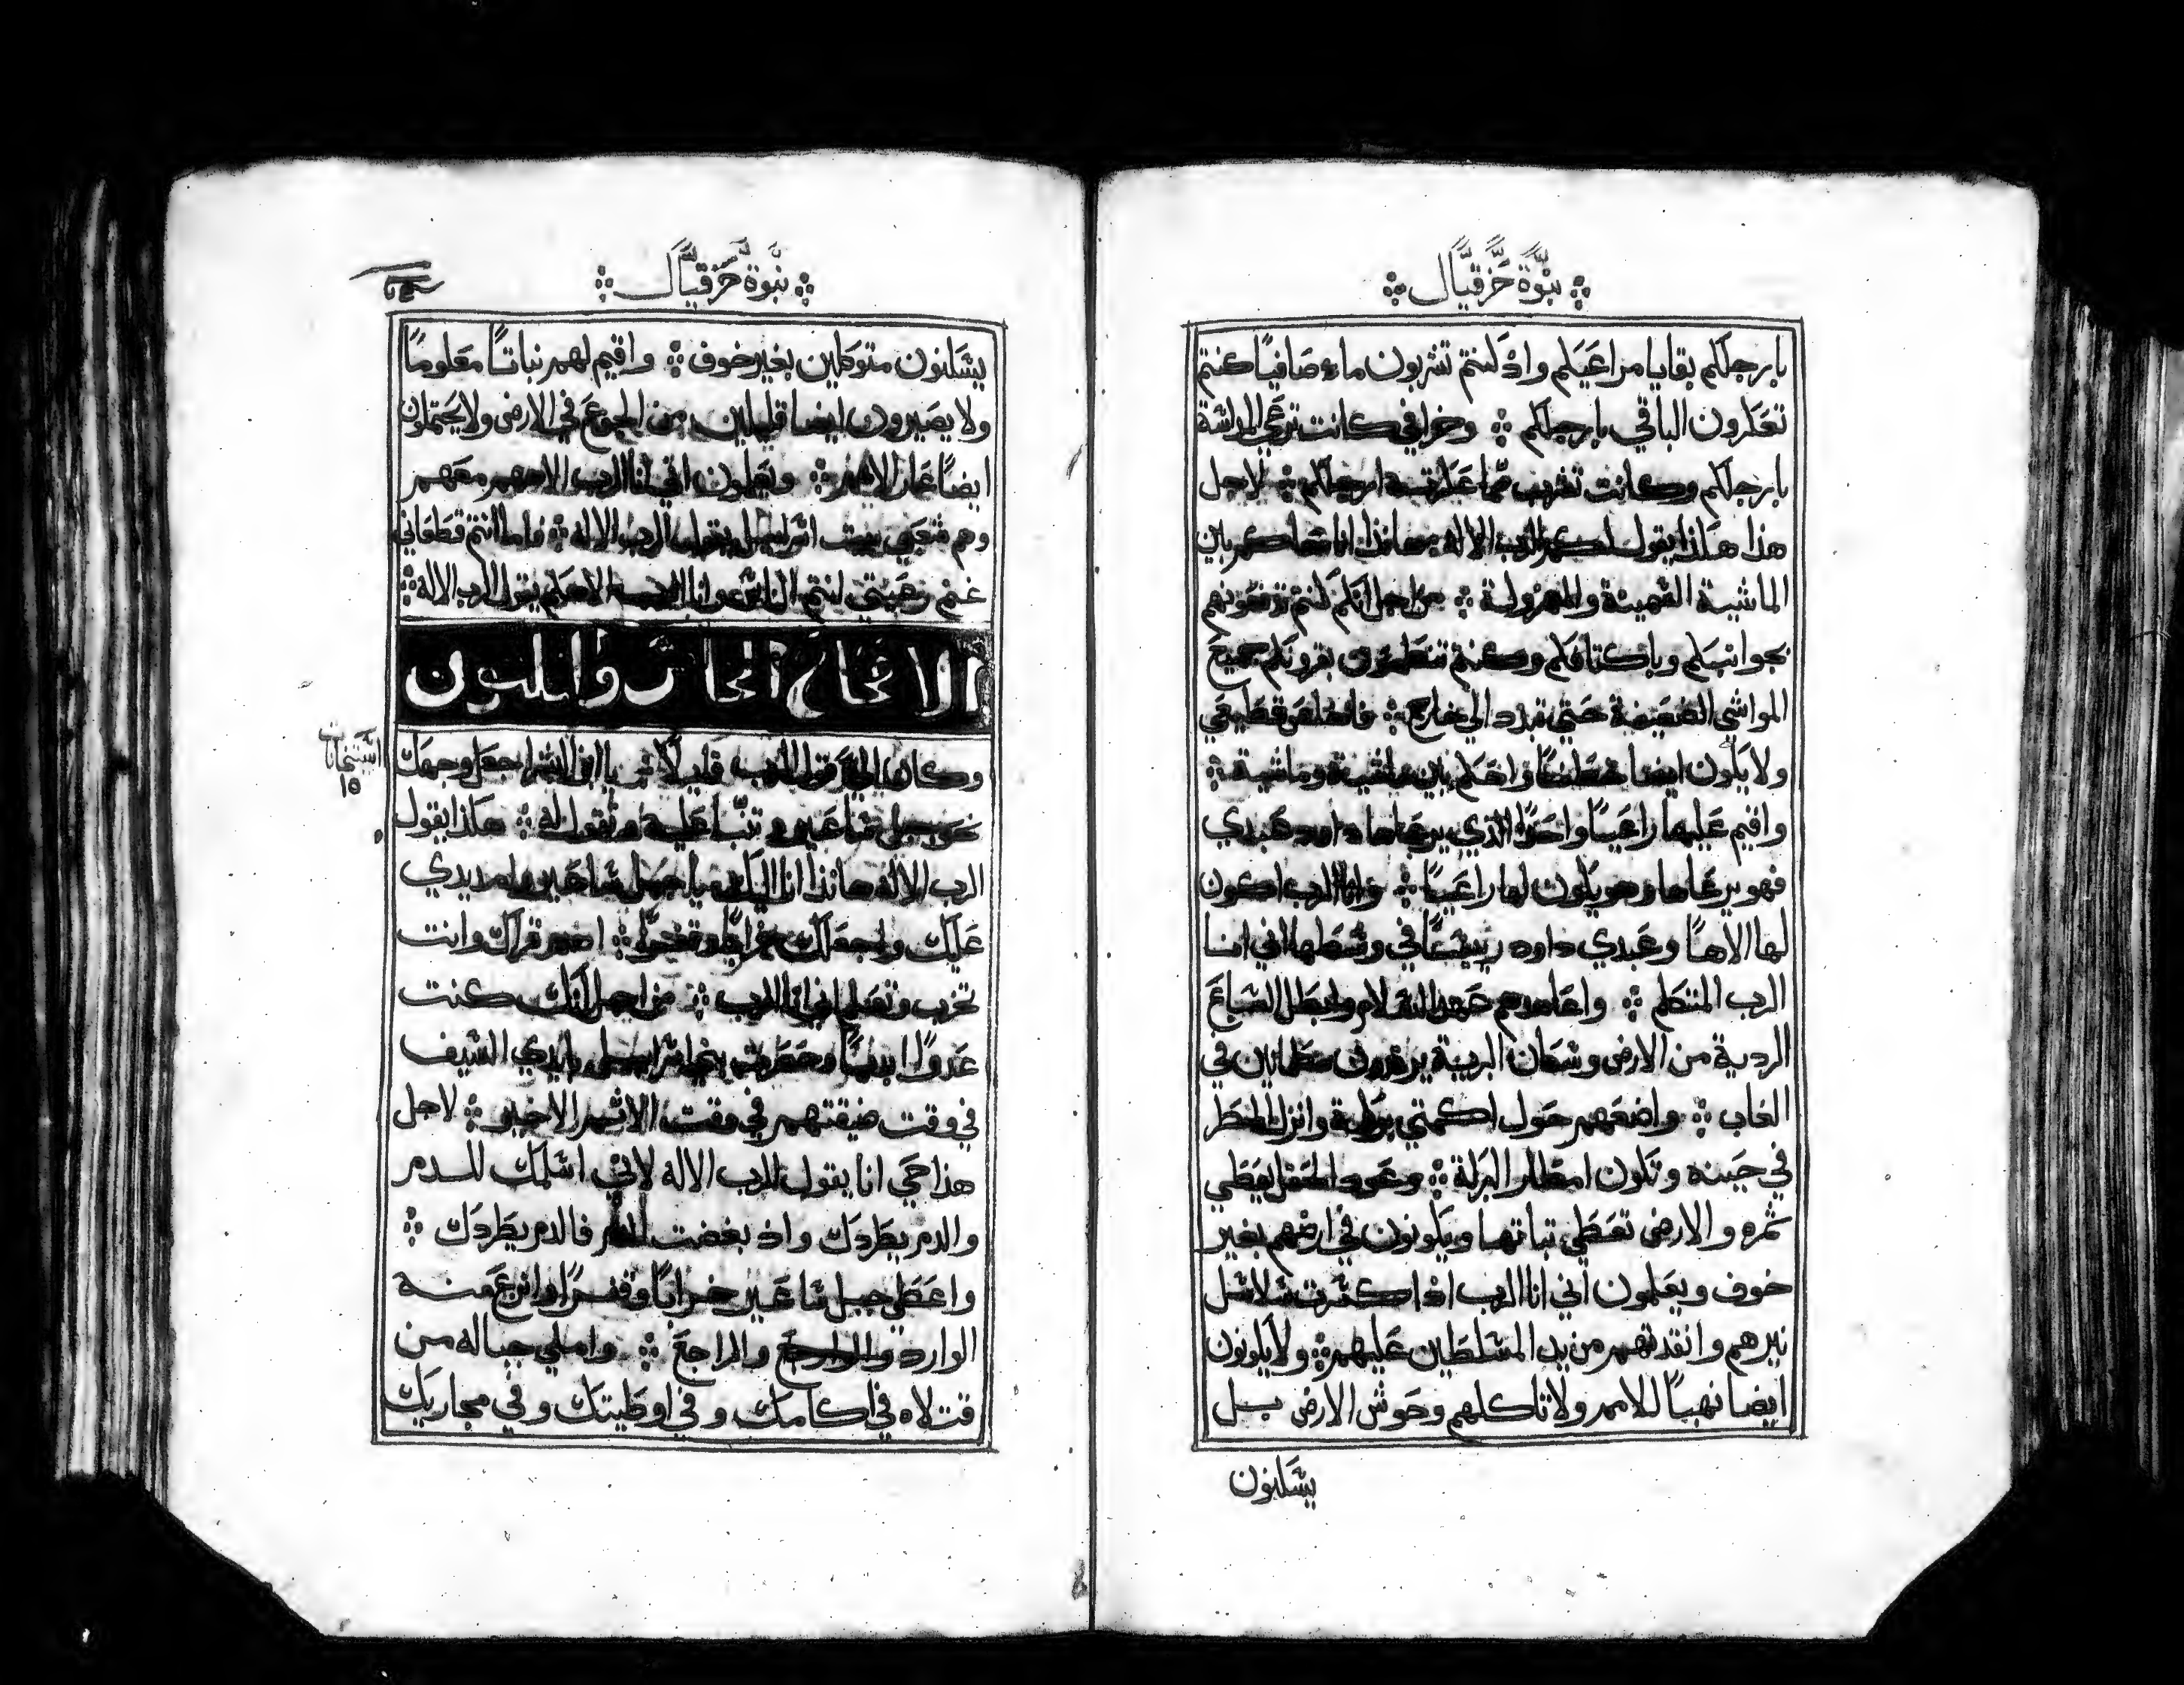 نبوة حزقيال
بارجلكم بقايا مراعيكم واذ كنتم تشربون ماء صافيًا كنتم
تعكرون الباقي بارجلكم وخرافي كانت ترعي المداسة
بارجلكم وكانت تشرب مما عكرته ارجلكم لاجل
هذا هكذا يقول لكم الرب الاله هانذا انا احاكم بين
الماشية السمينة والمهزولة من اجل انكم كنتم تدفعونهم
بجوانبكم وباكتافكم وكنتم تنطحون بقرونكم جميع
المواشي الضعيفة حتي تبدد الي خارج فاخلص قطيعي
ولا يكون ايضا خطفًا واحكم بين ماشية وماشية
واقيم عليها راعيًا واحدًا الذي يرعاها داود عبدي
فهو يرعاها وهو يكون لها راعيًا وانا الرب اكون
لها الاهًا وعبدي داود رييسًا في وسطها اني انا
الرب المتكلم واعاهدهم عهد السلام وابطل السباع
الردية من الارض وسكان البرية يرقدون مطمانين في
الغاب واضعهم حول اكمتي بركة وانزل المطر
في حينه وتكون امطار البركة وعود الحقل يعطي
ثمره والارض تعطي نباتها ويكونون في ارضهم بغير
خوف ويعلمون اني انا الرب اذا كسرت سلاسل
نيرهم وانقذتهم من يد المسلطين عليهم ولا يكونون
ايضا نهبًا للامم ولا تاكلهم وحوش الارض بل
يسكنون
نبوة حزقيال
يسكنون متوكلين بغير خوف واقيم لهم نباتًا معلومًا
ولا يصيرون ايضا قليلين من الجوع في الارض ولا يحتملون
ايضًا عار الامم ويعلمون اني انا الرب الاههم معهم
وهم شعبي بيت اسراييل يقول الرب الاله فاما انتم قطعاني
غنم رعيتي انتم الناس وانا الرب الاهكم يقول الرب الاله
الاصحاح الخامس والثلثون
وكان الي قول الرب قايلًا يا ابن البشر اجعل وجهك
نحو جبل ساعير وتنبا عليه وتقول له هكذا يقول
الرب الاله هانذا انا اليك يا جبل ساعير وامد يدي
عليك واجعلك خرابًا وقفرًا اهدم قراك وانت
تخرب وتعلم اني انا الرب من اجل انك كنت
عدوًا ابديًا وحصرت بني اسراييل بايدي السيف
في وقت ضيقتهم في وقت الاثم الاخير لاجل
هذا حي انا يقول الرب الاله لاني اسلمك للدم
والدم يطردك واذ بغضت الدم فالدم يطردك
واعطي جبل ساعير خرابًا وقفرًا وانزع منه
الوارد والراجع واملي جباله من
قتلاه في اكامك وفي اوطيتك وفي مجاريك